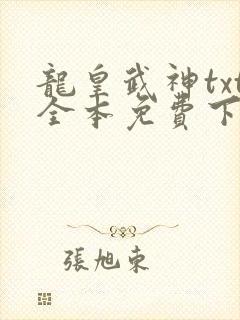 龍皇武神txt
全本免費下
張旭東